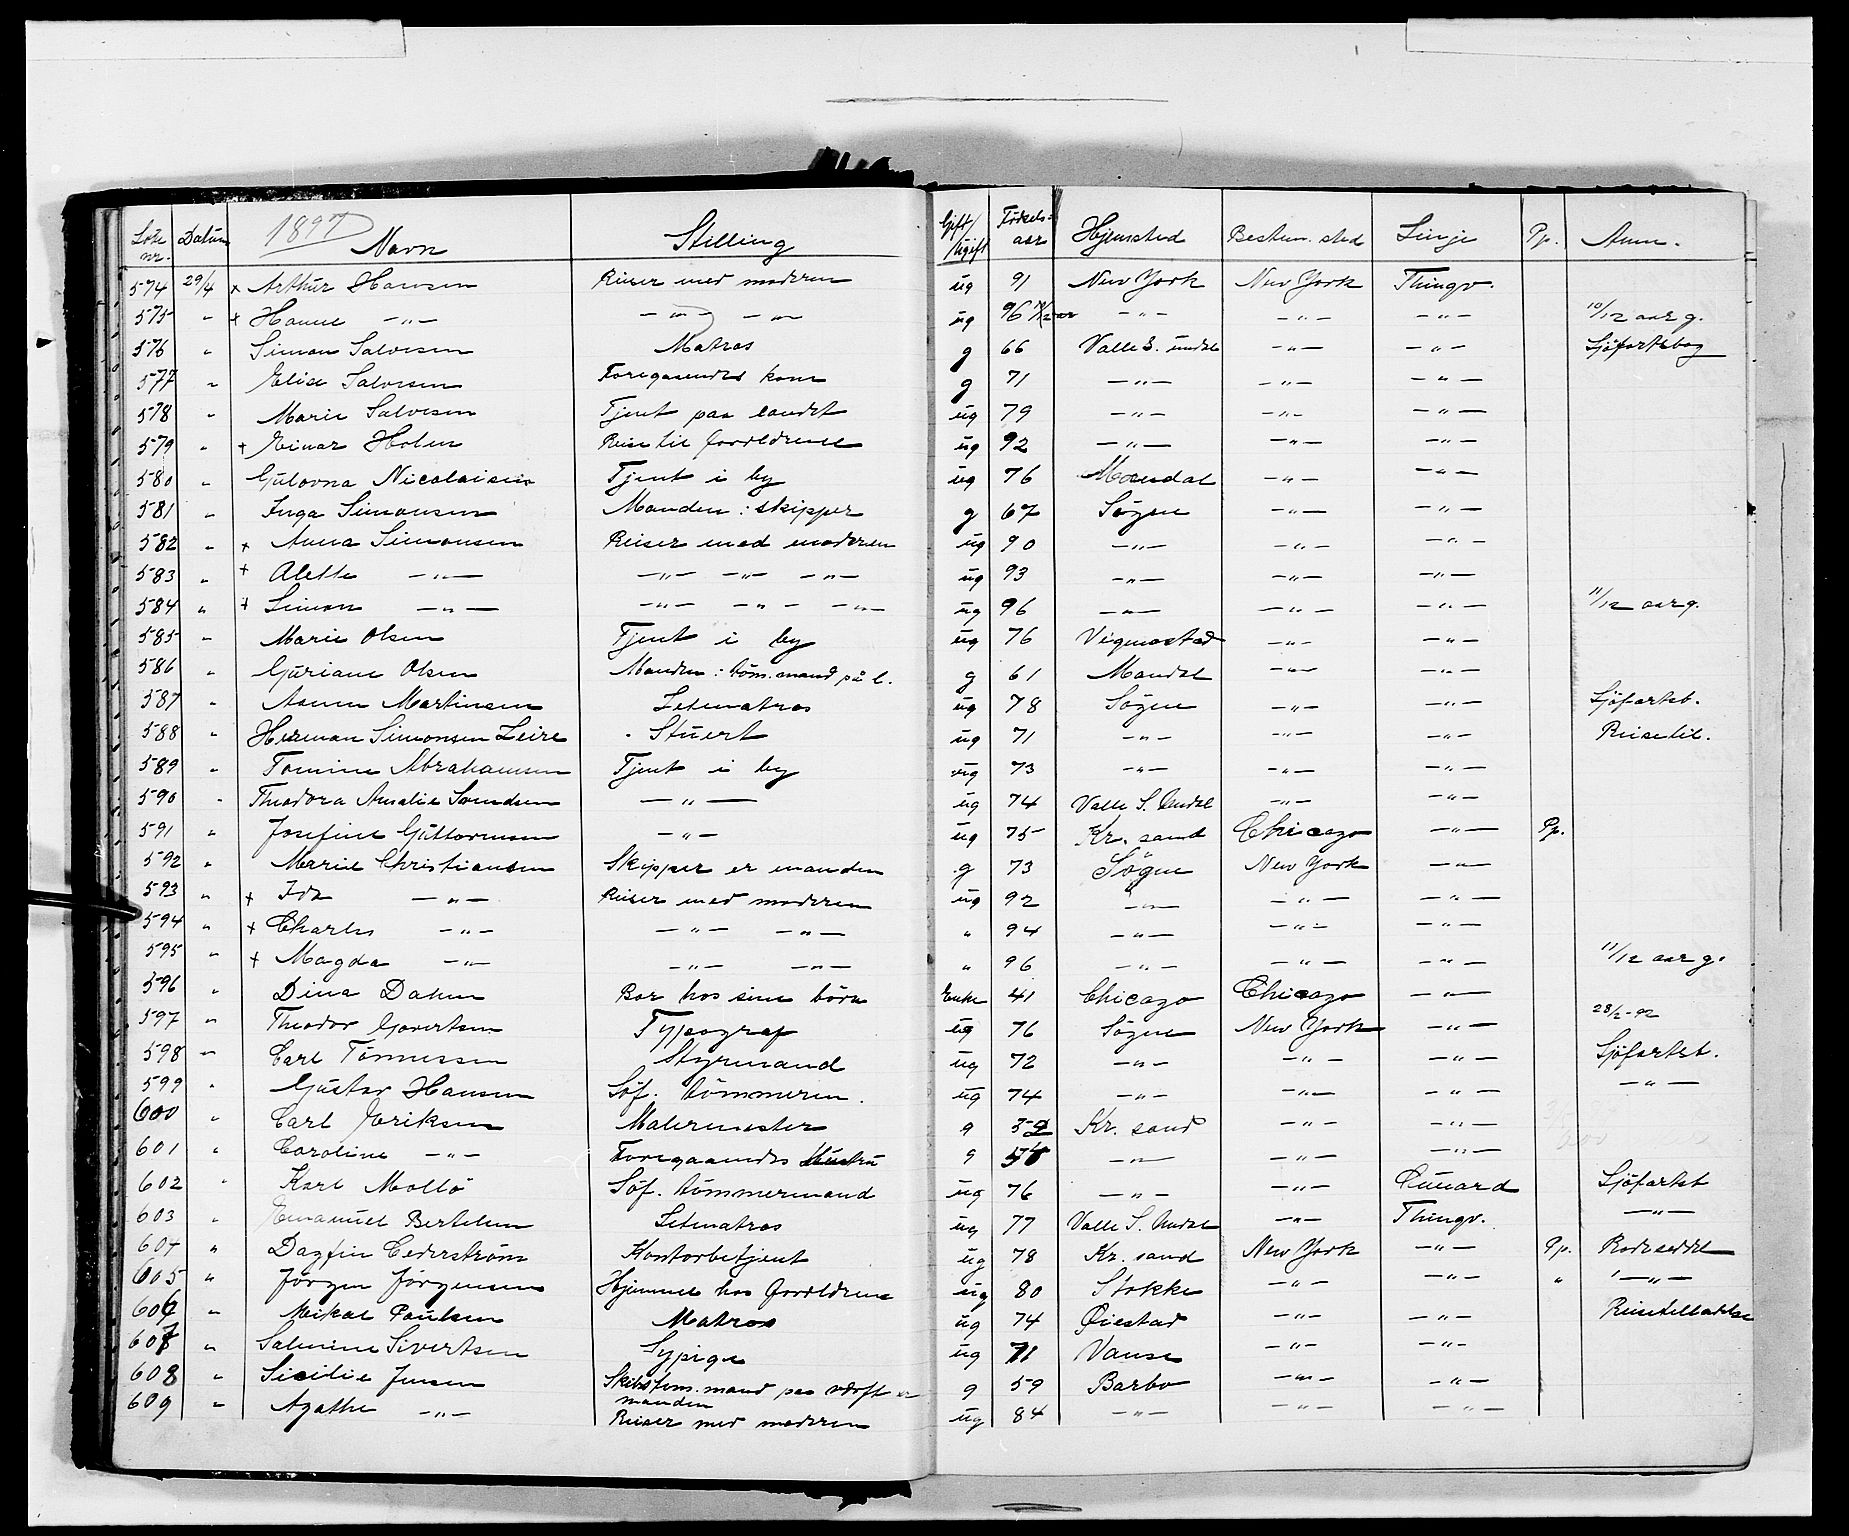 Löbe nr. Datum 1897 Navn Stilling Gift/Ugift Födsels-aar Hjemsted Bestem. sted Linje Pp. Anm.
574 29/4 x Arthur Hansen Reiser med moderen ug 91 New York New York Thingv.
575 " x Hanne -"- -"- -"- ug 96 -"- -"- -"- 10/12 aar g.
576 " Simon Salvesen Matros g 66 Valle S. undal -"- -"- Sjöfartsbog
577 " Elise Salvesen Foregaaendes kone g 71 -"- -"- -"-
578 " Marie Salvesen Tjent paa landet ug 79 -"- -"- -"-
579 " + Einar Holm Reise til forældrene ug 92 -"- -"- -"-
580 " Gulovna Nicolaisen Tjent i by ug 76 Mandal -"- -"-
581 " Inga Simonsen Manden : skipper g 67 Søgne -"- -"-
582 " x Anna Simonsen Reiser med moderen ug 90 -"- -"- -"-
583 " + Alette -"- -"- -"- -"- ug 93 -"- -"- -"-
584 " + Simon -"- -"- -"- -"- ug 96 -"- -"- -"- 11/12 aar g.
585 " Marie Olsen Tjent i by ug 76 Vigmostad -"- -"-
586 " Guriane Olsen Manden : töm.mand på l. g 61 Mandal -"- -"-
587 " Asmun Martinsen Letmatros ug 78 Søgne -"- -"- Sjöfartsb.
588 " Herman Simonsen Leire Stuert ug 71 -"- -"- -"- Reisetil.
589 " Tomine Abrahamsen Tjent i by ug 73 -"- -"- -"-
590 " Theodora Amalie Svendsen -"- ug 74 Valle S. Undal -"- -"-
591 " Josefine Guttormsen -"- ug 75 Kr. sand Chicago -"- Pp.
592 " Marie Christiansen Skipper er manden g 73 Søgne New York -"-
593 " x Ida -"- Reiser med moderen ug 92 -"- -"- -"-
594 " + Charles -"- -"- -"- " 94 -"- -"- -"-
595 " + Magda -"- -"- -"- " 96 -"- -"- -"- 11/12 aar g.
596 " Dina Dahm Bor hos sine börn Enke 41 Chicago Chicago -"-
597 " Theodor Govertsen Typograf ug 76 Søgne New York -"- 28/2-92
598 " Carl Tönnessen Styrmand ug 72 -"- -"- -"- Sjöfartsb.
599 " Gustav Hansen Söf. tömmerm. ug 74 -"- -"- -"- -"-
600 " Carl Eriksen Malermester g 39 Kr. sand -"- -"-
601 " Caroline -"- Foregaaendes Hustru g -"- -"- -"-
602 " Karl Mollö Söf. tömmermand ug 76 -"- -"- Cunard Sjöfartsb
603 " Emanuel Bertelsen Letmatros ug 77 Valle S. Undal -"- Thingv. -"-
604 " Dagfin Cederström Kontorbetjent ug 78 Kr. sand New York -"- Pp. Rodeseddel
605 " Jörgen Jörgensen Hjemme hos forældrene ug 80 Stokke -"- -"- " -"-
606 " Mikal Paulsen Matros ug 74 Øiestad -"- -"- Reisetilladelse
607 " Salmine Sivertsen Sypige ug 71 Vanse -"- -"-
608 " Sicilie Jensen Skibstöm.mand paa værft er manden g 59 Barbo -"- -"-
609 " Agathe -"- Reiser med moderen ug 84 -"- -"- -"-